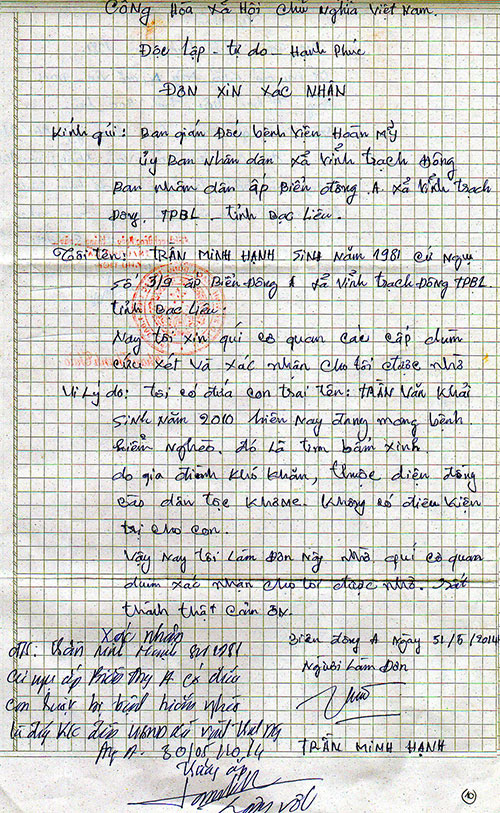 CÔNG Hòa xã Hội chủ Nghĩa Việt Nam.
Độc lập - tự do - Hạnh Phúc
ĐƠN XIN XÁC NHẬN
Kính gửi: Ban gián Đốc bệnh viện Hoàn Mỹ
Ủy Ban Nhân dân xã Vĩnh Trạch Đông
Ban nhân dân ấp Biển Đông A xã Vĩnh Trạch
Đông. TPBL - tỉnh Bạc Liêu.
Tôi tên: TRẦN MINH HẠNH SINH Năm 1981 cư Ngụ
Số 3/9 ấp Biển Đông A xã Vĩnh Trạch Đông TPBL.
tỉnh Bạc Liêu.
Nay tôi xin quí cơ quan các cấp dùm
cứu xét và xác nhận cho tôi được nhờ
Vì Lý do: tôi có đứa con trai tên: TRẦN Văn Khải
sinh năm 2010 hiện Nay đang mang bệnh
hiểm Nghèo. đó là tim bẩm xinh.
do gia đình khó khăn, thuộc diện đồng
bào dân tộc khơme. Không có điều kiện
trị cho con.
Vậy Nay tôi Làm Đơn Này nhờ quí cơ quan
dùm xác nhận cho tôi được nhờ.
thành thật cảm ơn.
Xác nhận
Biển đông A Ngày 31/5/2014
Người Làm Đơn
Trần Minh Hạnh 1981
cư ngụ ấp Biển Đông A có đứa
con bị bệnh hiểm nghèo
Đông A. 30/05/2014
TRẦN MINH HẠNH
Trưởng ấp
10